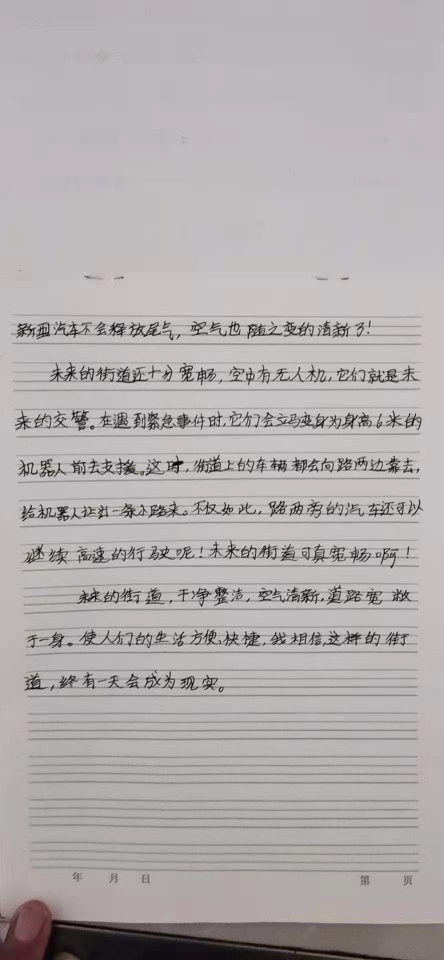 新型汽车不会释放尾气，空气也随之变的清新了！
未来的街道还十分宽畅，空中有无人机，它们就是未
来的交警。在遇到紧急事件时，它们会立马变身为身高6米的
机器人前去支援。这时，街道上的车辆都会向路两边靠去，
给机器人让出一条小路来。不仅如此，路两旁的汽车还可以
继续高速的行驶呢！未来的街道可真宽畅啊！
未来的街道，干净整洁，空气清新，道路宽敞
于一身。使人们的生活方便，快捷，我相信，这样的街
道，终有一天会成为现实。
年 月 日
第 页